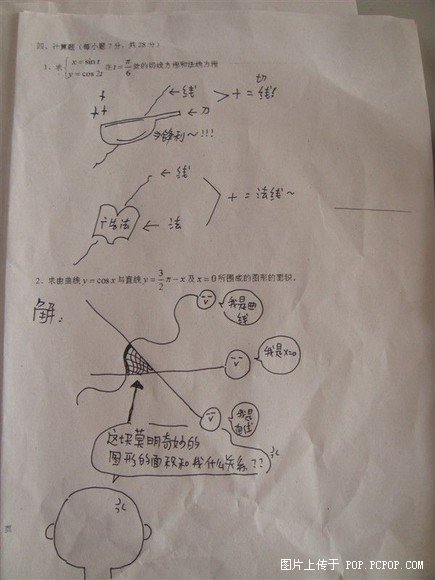 四、计算题(每小题7分,共28分)
1、求{x = sin t y = cos 2t 在 t = π/6 处的切线方程和法线方程
← 线
切
> + = 线
← 刀
锋利~!!!
← 线
> + = 法线~
← 法
2、求由曲线 y = cos x 与直线 y = 3/2 π - x 及 x = 0 所围成的图形的面积。
解:
我是曲线
我是x=0
我是直线
这块莫明奇妙的
图形的面积和我什么关系??
图片上传于 POP.PCPOP.COM